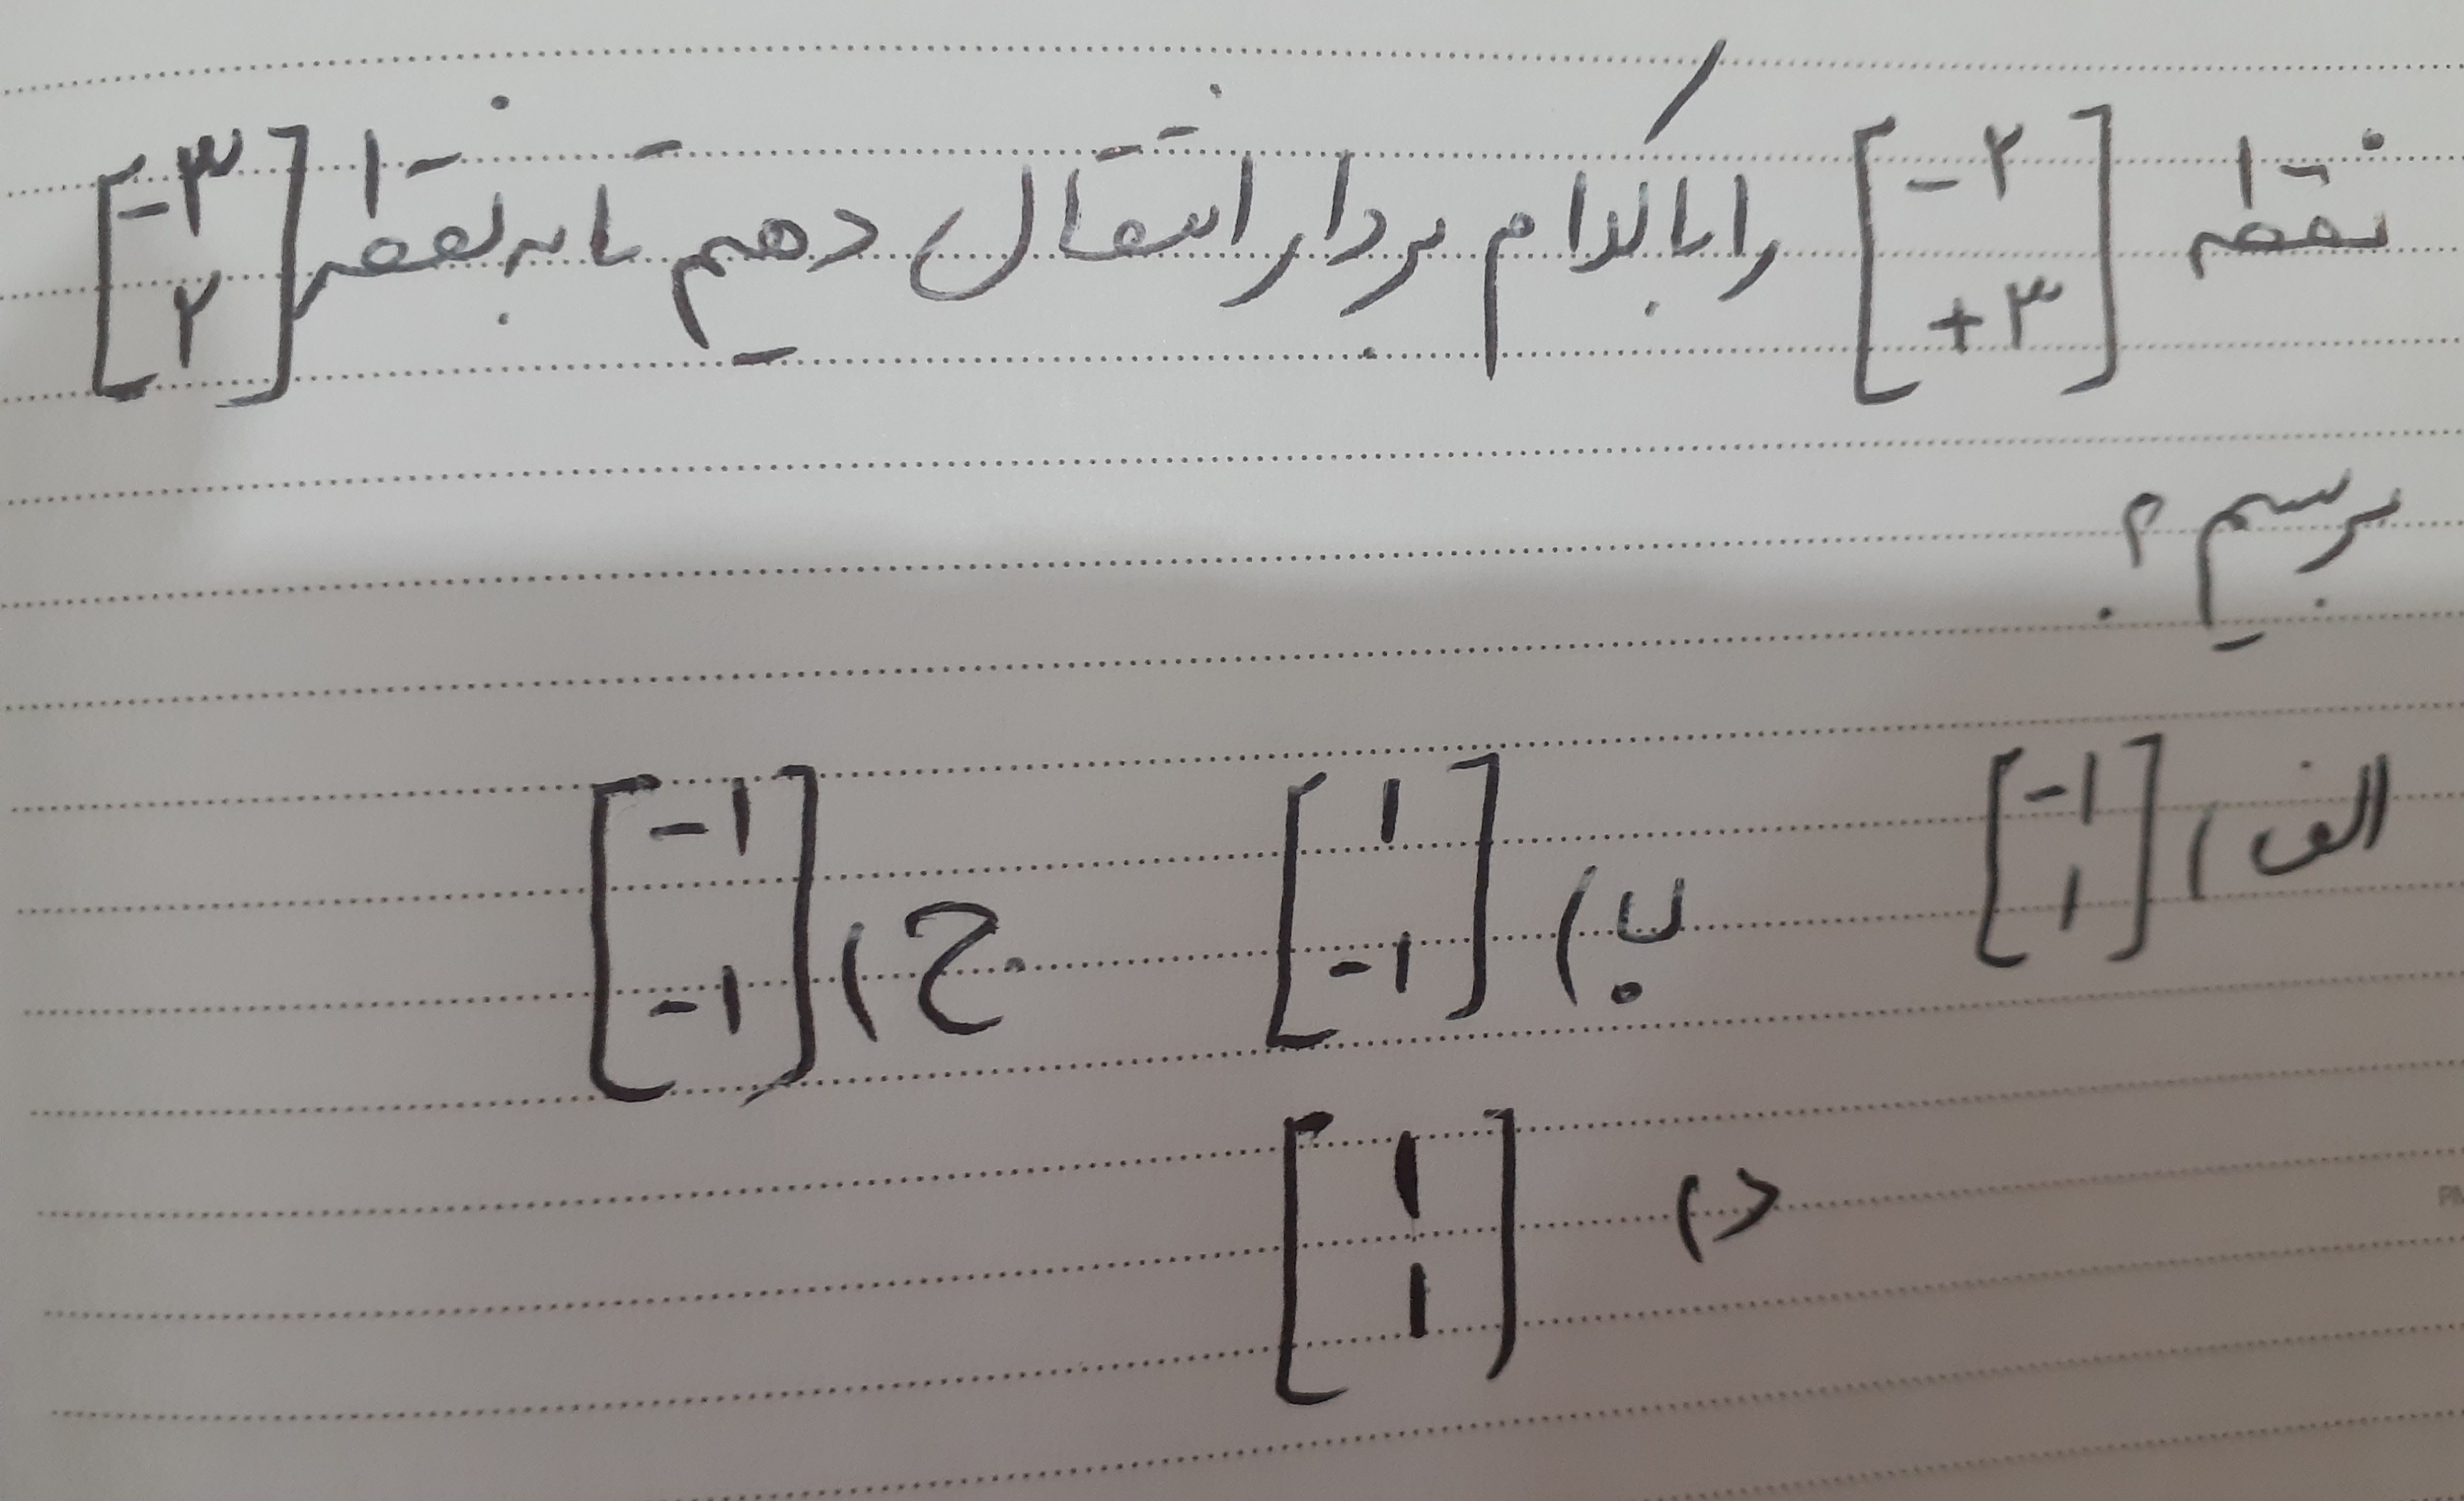 نقطه [-۲ +۳] را با کدام بردار انتقال دهیم تا به نقطه [-۳ ۲]
برسیم ؟
الف) [-۱ ۱] ب) [۱ -۱] ج) [-۱ -۱]
د) [۱ ۱]